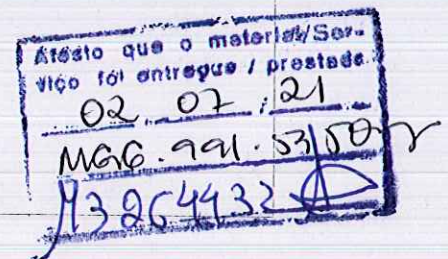 Atesto que o material/Ser-
viço foi entregue / prestado.
02 07 21
MG6.991.53
M3264432